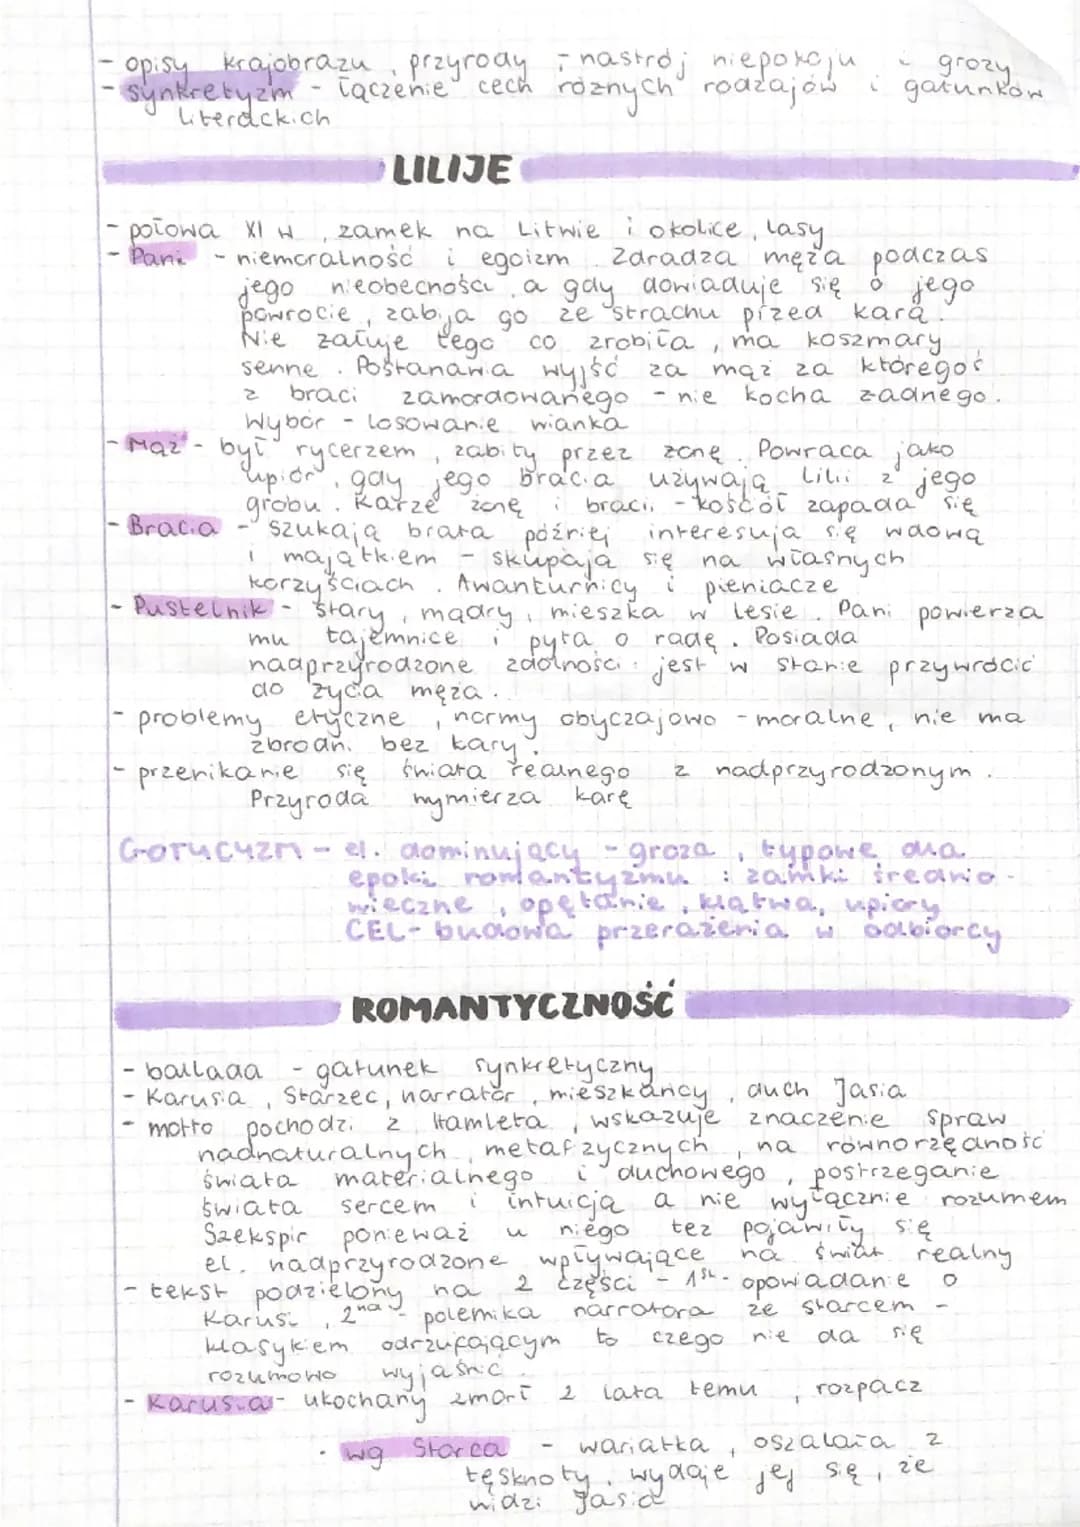 - opisy krajobrazu, przyrody - nastrój niepokoju i grozy
- synkretyzm - łączenie cech różnych rodzajów i gatunków
literackich
LILIJE
- połowa XI w, zamek na Litwie i okolice, lasy
- Pani - niemoralność i egoizm. Zdradza męża podczas
jego nieobecności, a gdy dowiaduje się o jego
powrocie, zabija go ze strachu przed karą.
Nie żałuje tego co zrobiła, ma koszmary
senne. Postanawia wyjść za mąż za któregoś
z braci zamordowanego - nie kocha żadnego.
Wybór - losowanie wianka
- Mąż - był rycerzem, zabity przez żonę. Powraca jako
upiór, gdy jego bracia używają lilii z jego
grobu. Karze żonę i braci. - kościół zapada się
- Bracia - szukają brata później interesują się wdową
i majątkiem - skupiają się na własnych
korzyściach. Awanturnicy i pieniacze
- Pustelnik - stary, mądry, mieszka w lesie. Pani powierza
mu tajemnice i pyta o radę. Posiada
nadprzyrodzone zdolności: jest w stanie przywrócić
do życia męża.
- problemy etyczne, normy obyczajowo - moralne, nie ma
zbrodni bez kary.
- przenikanie się świata realnego z nadprzyrodzonym.
Przyroda wymierza karę
GOTYCYZM - el. dominujący - groza, typowe dla
epoki romantyzmu: zamki średnio-
wieczne, opętanie, klątwa, upiory
CEL- budowa przerażenia w odbiorcy
ROMANTYCZNOŚĆ
- ballada - gatunek synkretyczny
- Karusia, Starzec, narrator, mieszkańcy, duch Jasia
- motto pochodzi z Hamleta, wskazuje znaczenie spraw
nadnaturalnych, metafizycznych, na równorzędność
świata materialnego i duchowego, postrzeganie
świata sercem i intuicją a nie wyłącznie rozumem
Szekspir ponieważ u niego też pojawiły się
el. nadprzyrodzone wpływające na świat realny
- tekst podzielony na 2 części - 1st - opowiadanie o
Karusi, 2nd - polemika narratora ze starcem -
klasykiem odrzucającym to czego nie da się
rozumowo wyjaśnić.
- Karusia - ukochany zmarł 2 lata temu, rozpacz
• wg Starca - wariatka, oszalała z
tęsknoty, wydaje jej się, że
widzi Jasia